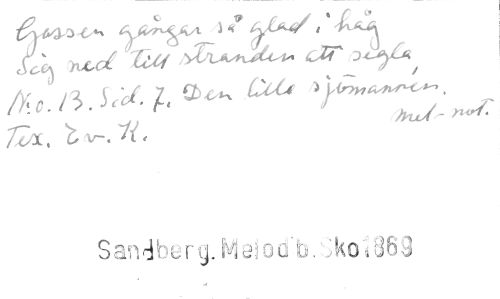 Gossen gångar så glad i håg
Sig ned till stranden att segla,
N:o. 13. Sid. 7. Den lille sjömannen.
mel-not.
Tex. Ev. K.
Sandberg. Melodib. Sko 1869